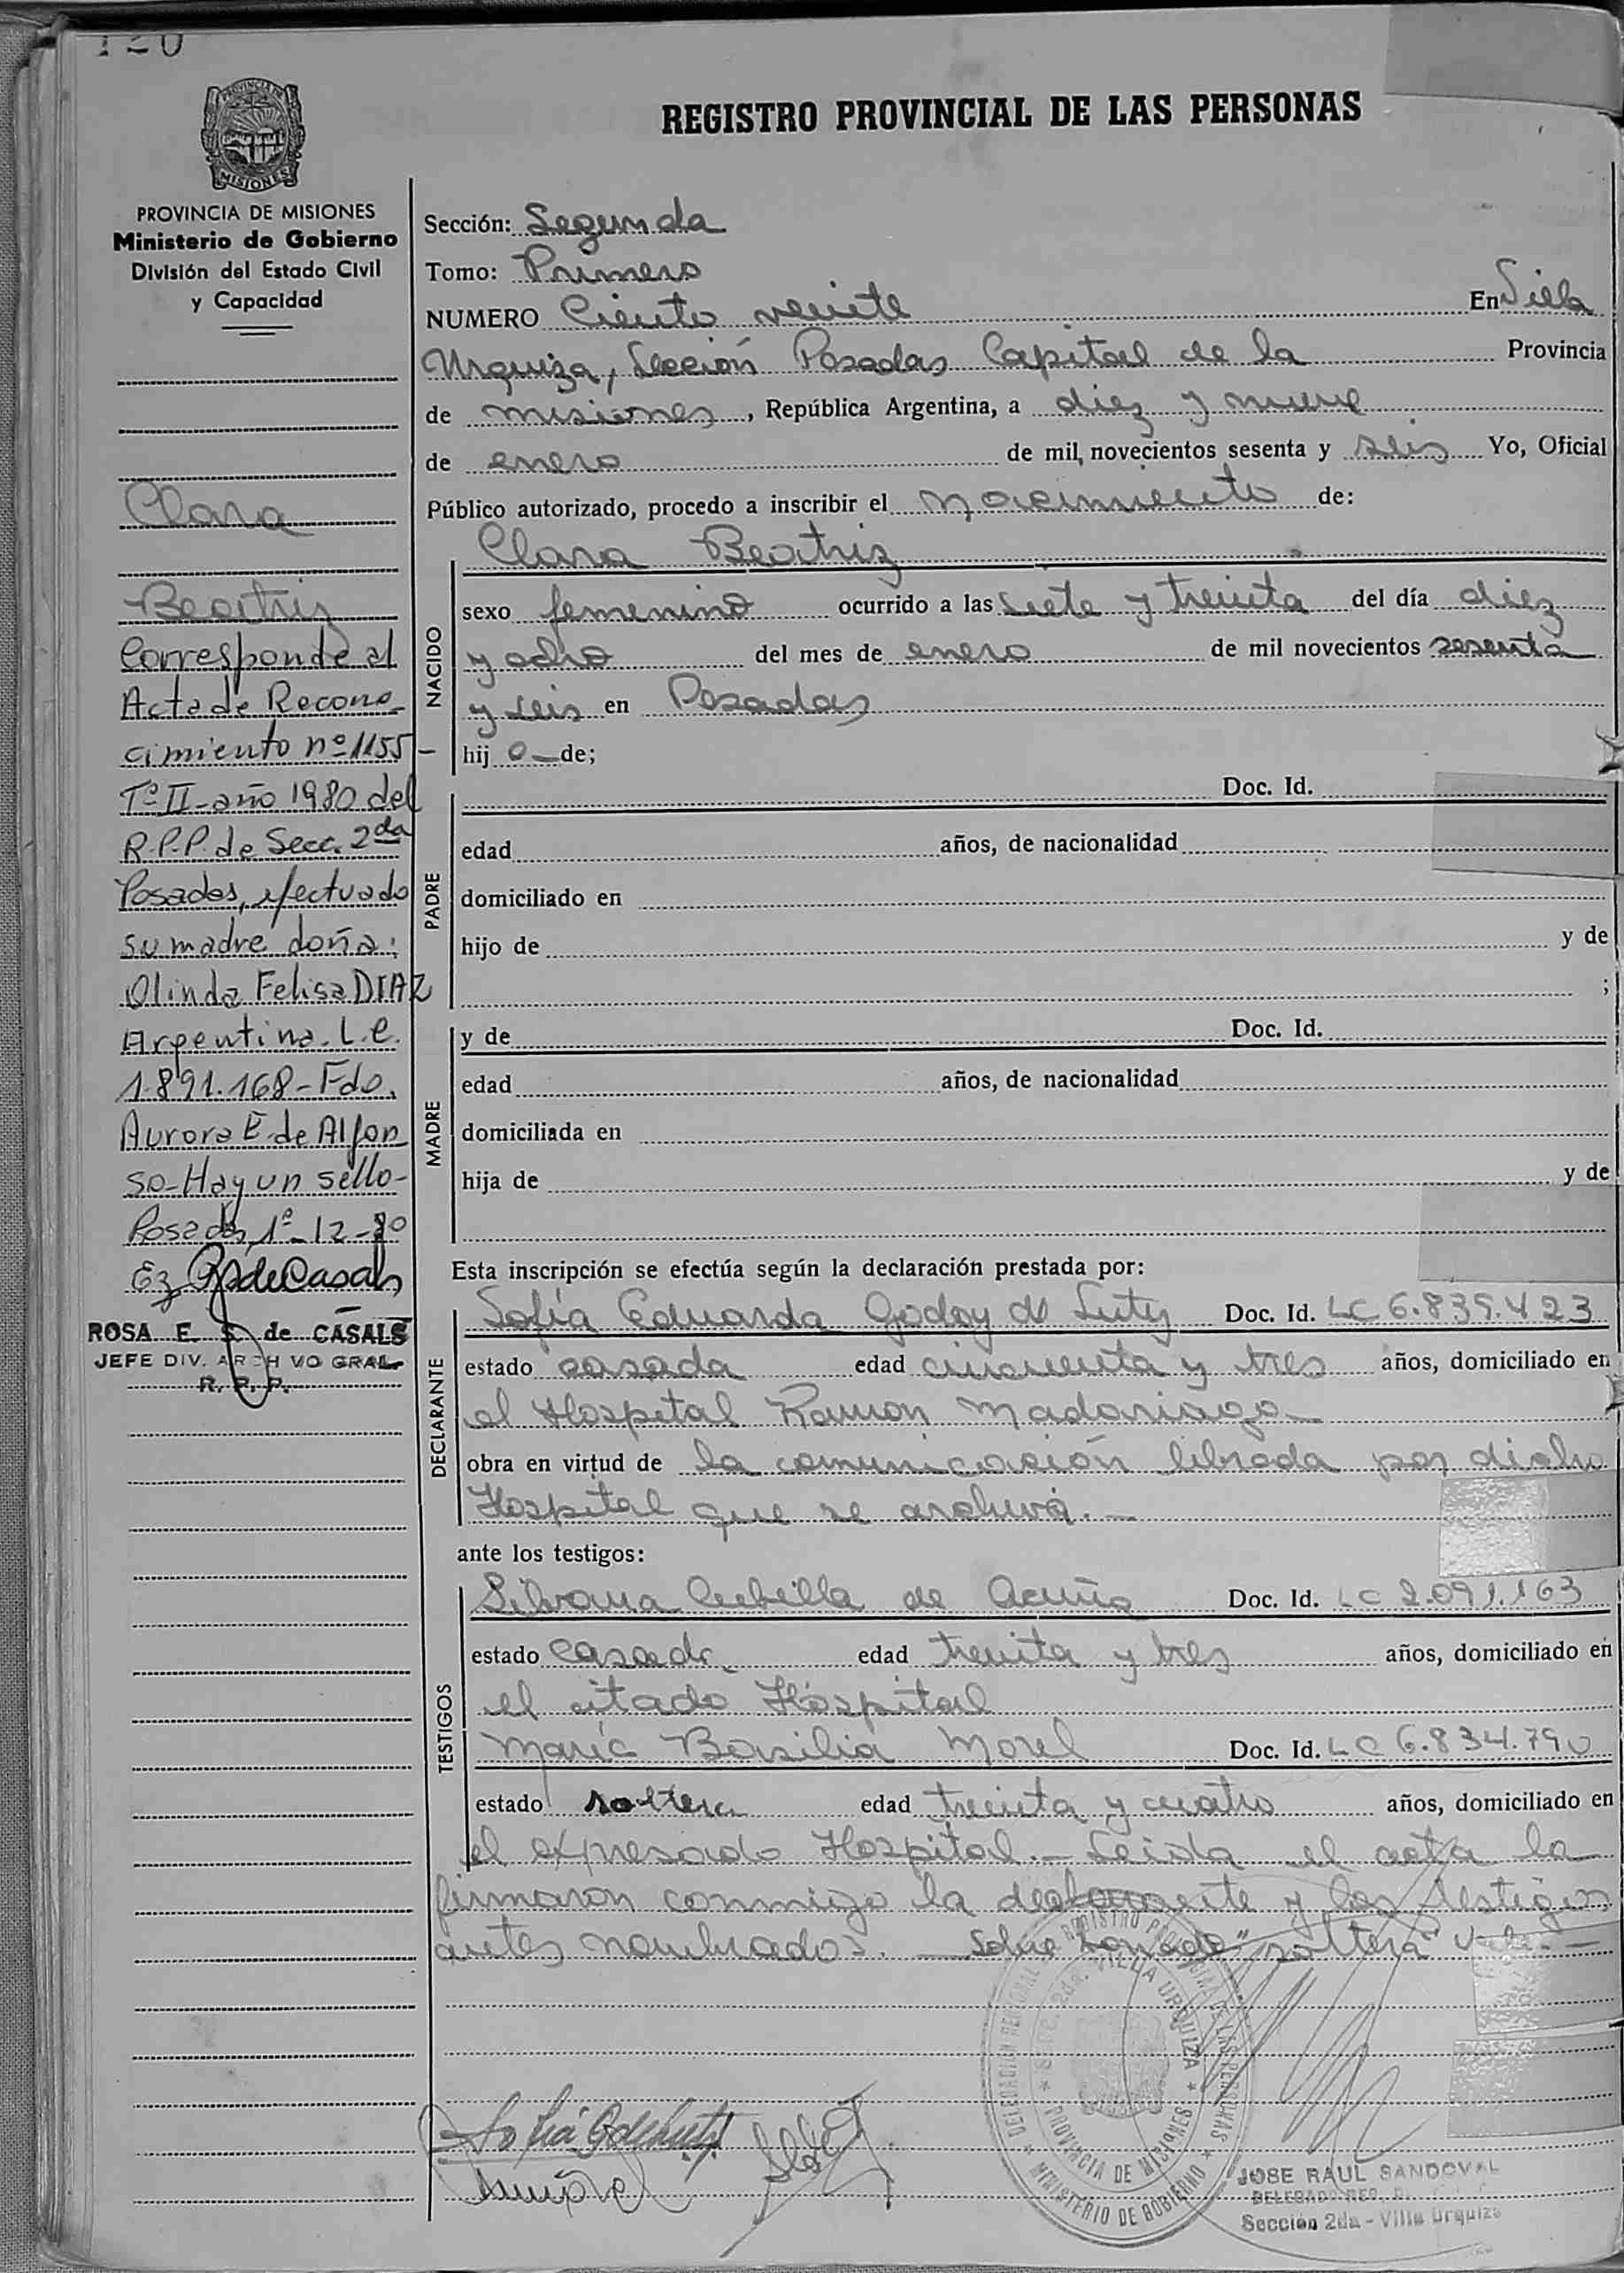 120
PROVINCIA DE MISIONES
MISIONES
PROVINCIA DE MISIONES
Ministerio de Gobierno
División del Estado Civil
y Capacidad
Clara
Beatriz
Corresponde al
Acta de Recono-
cimiento nº 1155-
Tº II-año 1980 del
R.P.P. de Secc. 2da
Posadas, efectuado
su madre doña:
Olinda Felisa DIAZ
Argentina. L.C.
1.891.168-Fdo.
Aurora E. de Alfon
so-Hay un sello-
Posadas, 1º-12-80
de Casals
ROSA E. S. de CASALS
JEFE DIV. ARCHIVO GRAL.
R. P. P.
REGISTRO PROVINCIAL DE LAS PERSONAS
Sección: Segunda
Tomo: Primero
NUMERO Ciento veinte En Villa
Urquiza, Sección Posadas Capital de la Provincia
de misiones, República Argentina, a diez y nueve
de enero de mil novecientos sesenta y seis Yo, Oficial
Público autorizado, procedo a inscribir el nacimiento de:
Clara Beatriz
NACIDO
sexo femenino ocurrido a las siete y treinta del día diez
y ocho del mes de enero de mil novecientos sesenta
y seis en Posadas
hij a — de;
PADRE
Doc. Id.
edad años, de nacionalidad
domiciliado en
hijo de y de
;
MADRE
y de Doc. Id.
edad años, de nacionalidad
domiciliada en
hija de y de
Esta inscripción se efectúa según la declaración prestada por:
DECLARANTE
Sofía Eduarda Godoy de Luty Doc. Id. LC 6.835.423
estado casada edad cincuenta y tres años, domiciliado en
el Hospital Ramon Madariaga—
obra en virtud de la comunicación librada por dicho
Hospital que se archiva.—
ante los testigos:
TESTIGOS
Silvana Cubilla de Acuña Doc. Id. LC 2.091.163
estado casada edad treinta y tres años, domiciliado en
el citado Hospital
María Basilia Morel Doc. Id. LC 6.834.790
estado soltera edad treinta y cuatro años, domiciliado en
el expresado Hospital.— Leida el acta la
firmaron conmigo la declarante y los testigos
antes nombrados.— Sobre borrado "soltera" Vale.—
DELEGACION REGISTRO PROVINCIAL DE LAS PERSONAS * MINISTERIO DE GOBIERNO *
SECC. 2da. VILLA URQUIZA * PROVINCIA DE MISIONES *
JOSE RAUL SANDOVAL
Sección 2da - Villa Urquiza